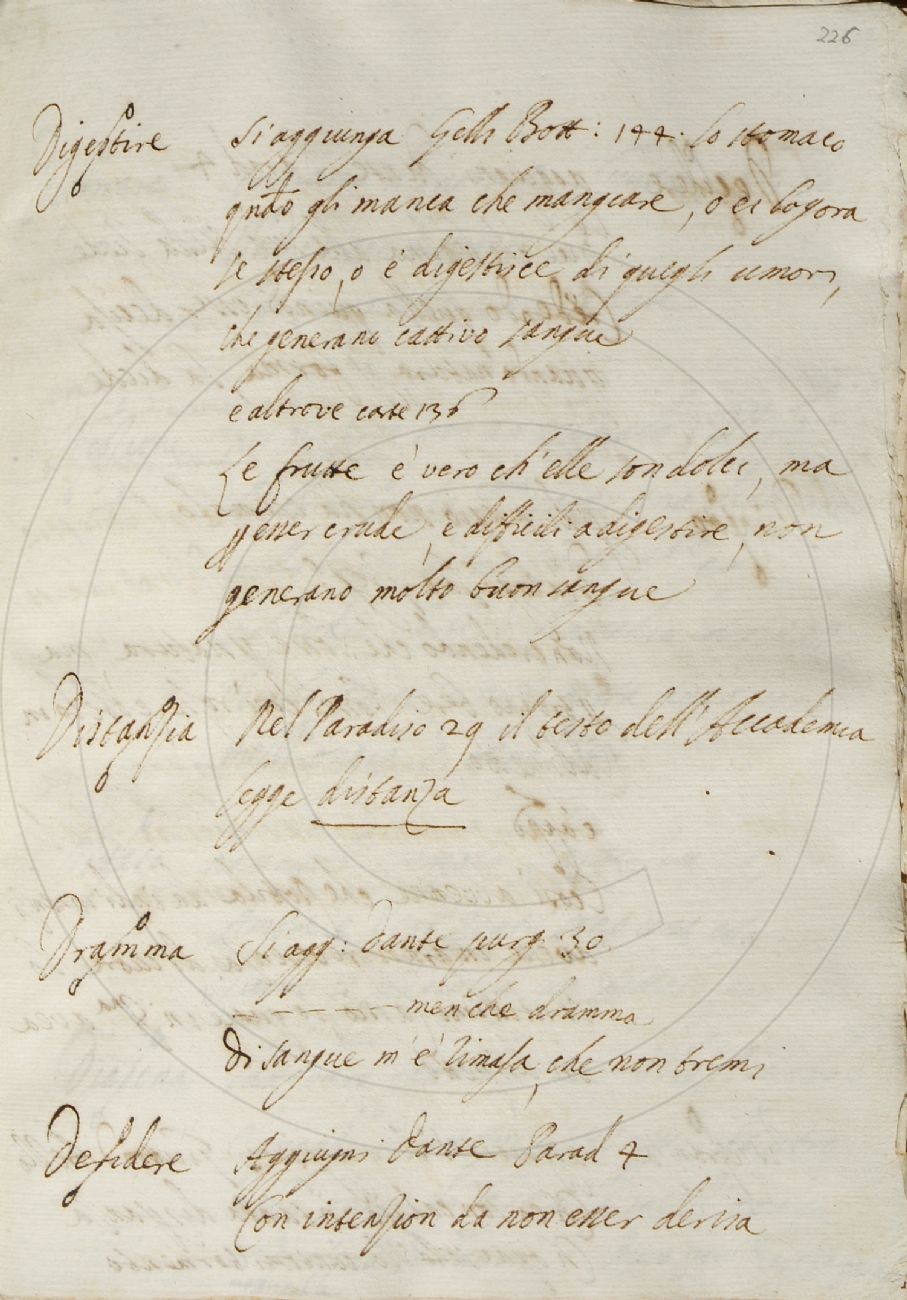 226
Digestire Si aggiunga Gelli Bott: 144. Lo stomaco
qndo gli manca che mangiare, o ei logora
se stesso, o è digestisce di quegli umori,
che generano cattivo sangue
e altrove carte 136
Le frutte è vero ch'elle son dolci, ma
p esser crude, e difficili a digestire, non
generano molto buon sangue
Distanzia Nel Paradiso 29 il testo dell'Accademia
legge distanza
Dramma Si agg: Dante purg. 30
men che dramma
Di sangue m'è rimasa, che non tremi
Deridere Aggiugni Dante Parad 4
Con intenzion da non esser derisa